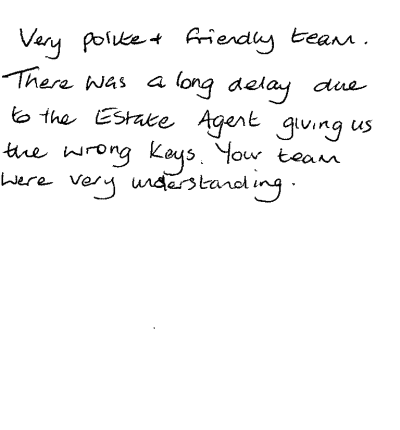 Very polite + friendly team.
There was a long delay due
to the Estate Agent giving us
the wrong keys. Your team
were very understanding.